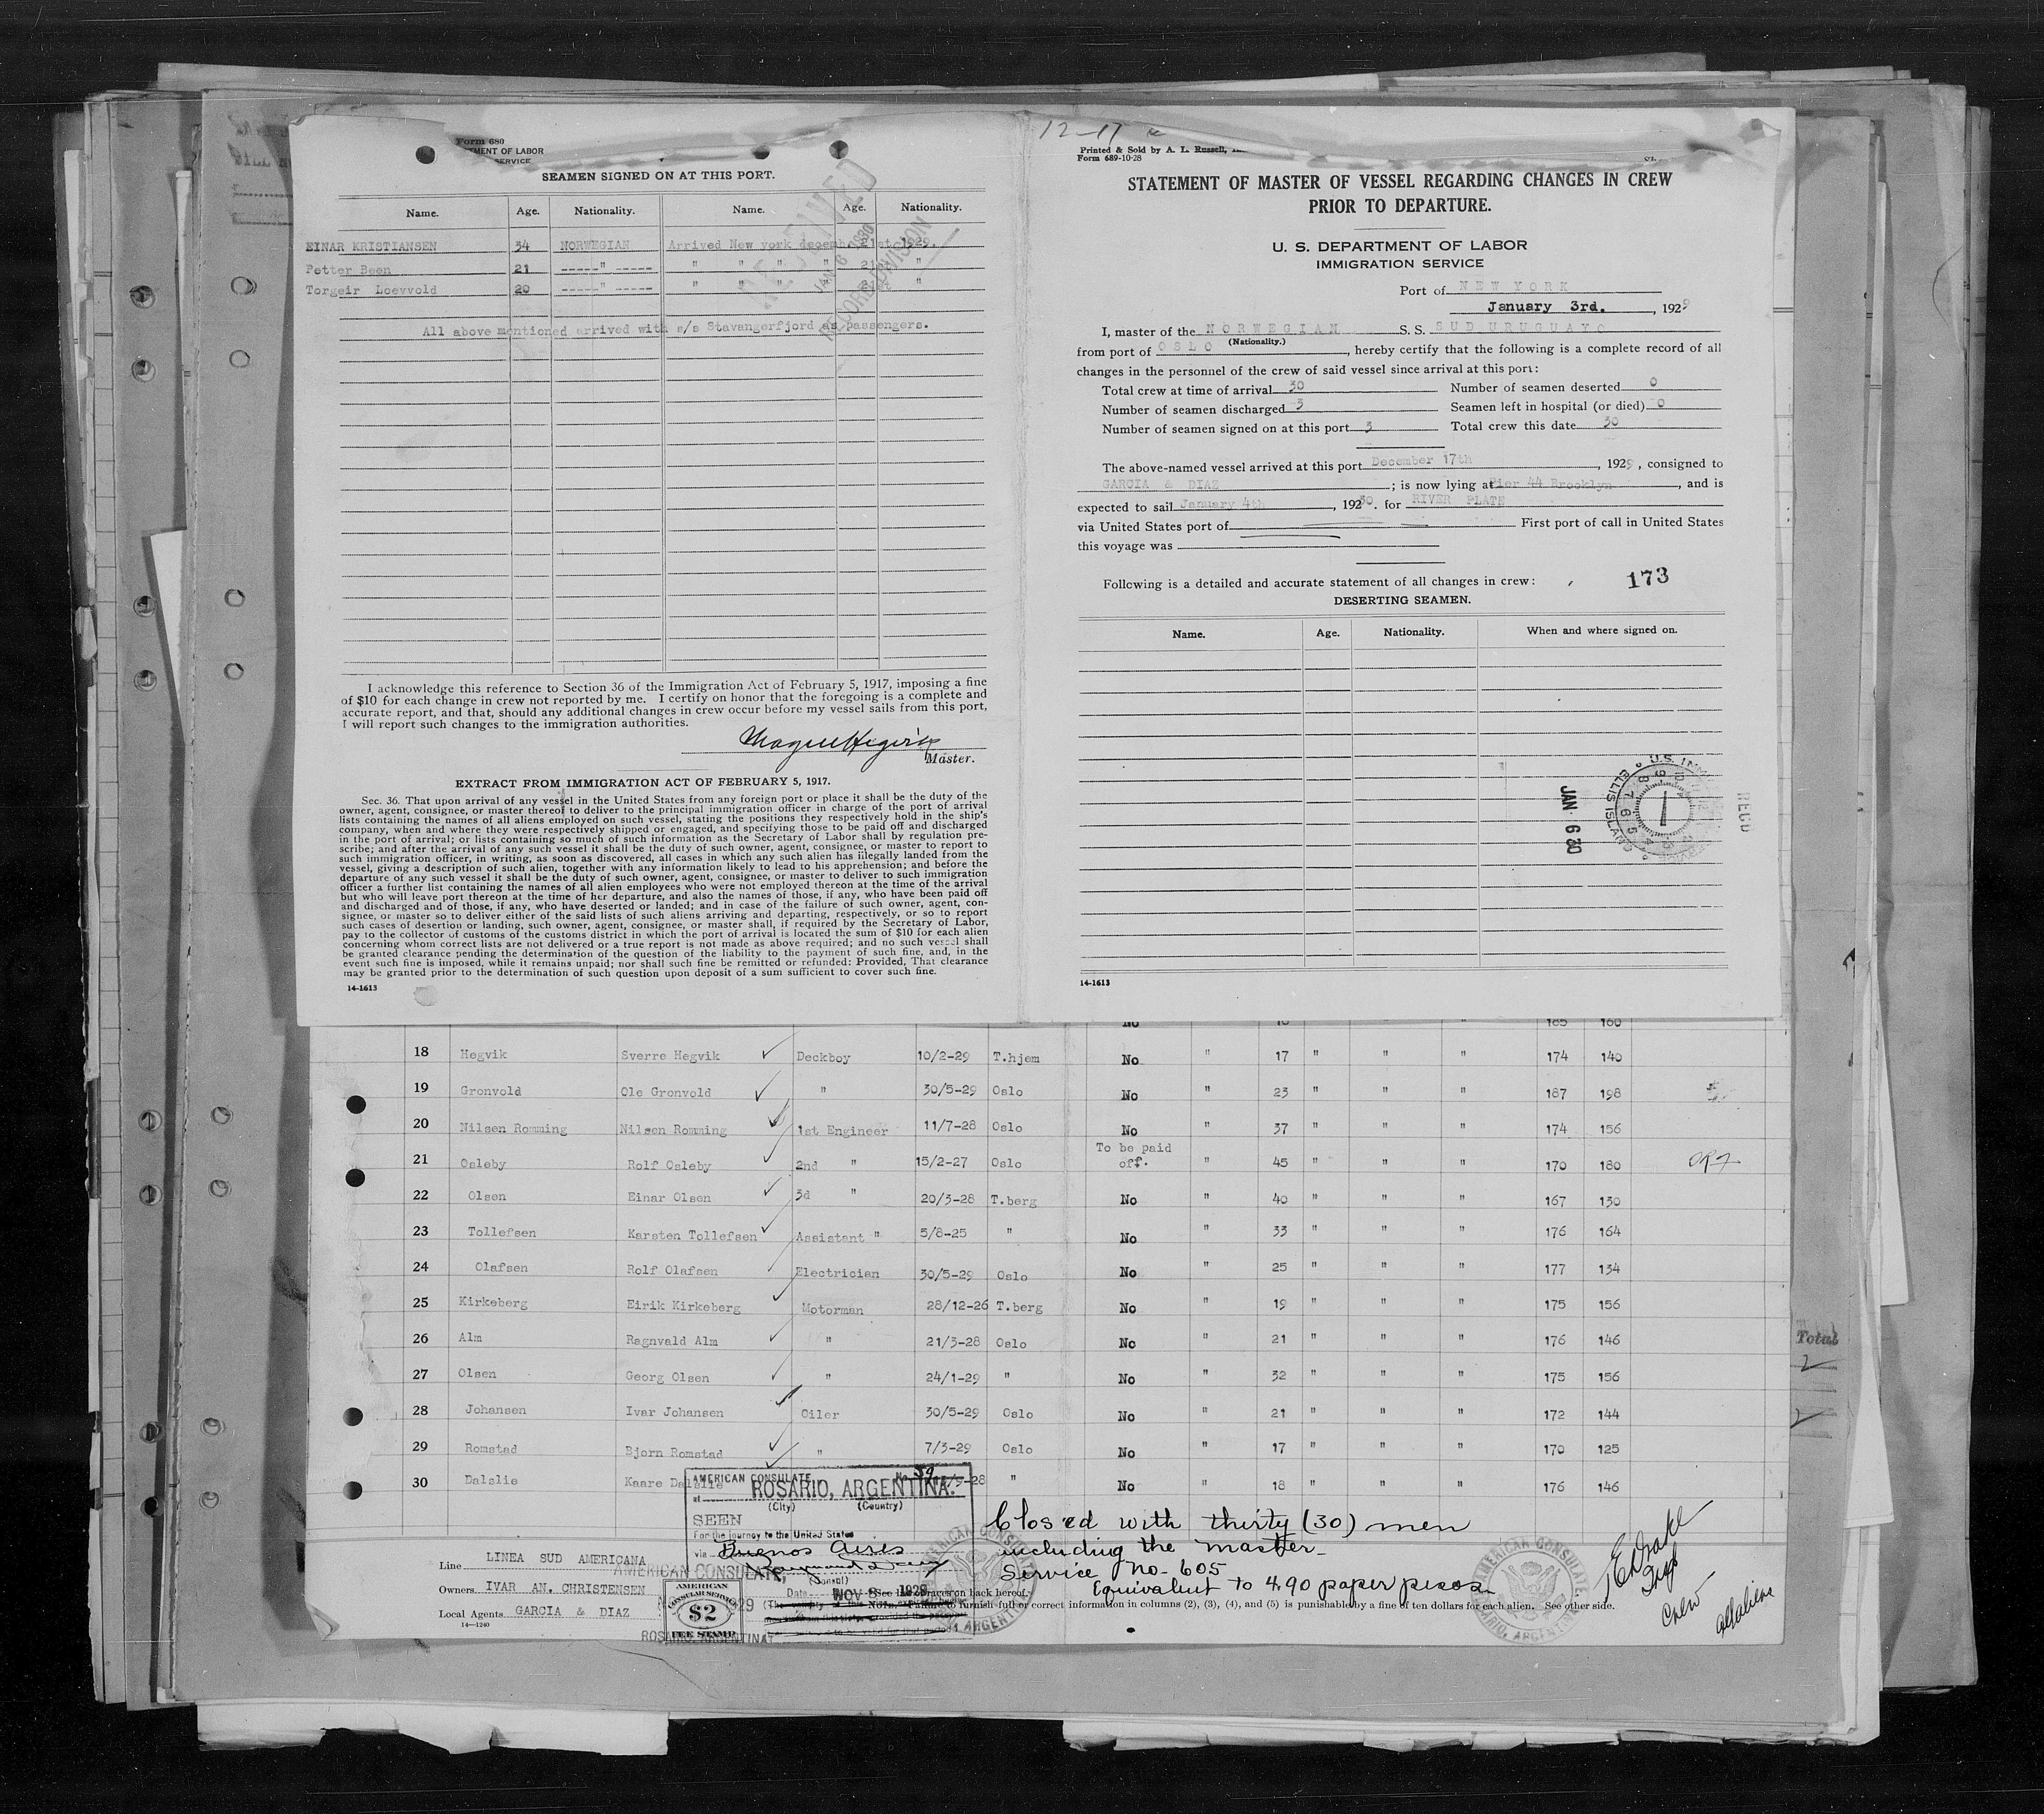 Form 680
MENT OF LABOR
SERVICE
SEAMEN SIGNED ON AT THIS PORT.
Name. Age. Nationality. Name. Age. Nationality.
EINAR KRISTIANSEN 34 NORWEGIAN Arrived New york decemb. 21st 1929.
Petter Been 21 -----"----- " " " " 21 "
Torgeir Loevvold 20 -----"----- " " " " 21 "
All above mentioned arrived with s/s Stavangerfjord as passengers.
RECEIVED
JAN 6 1930
RECORD DIVISION
I acknowledge this reference to Section 36 of the Immigration Act of February 5, 1917, imposing a fine
of $10 for each change in crew not reported by me. I certify on honor that the foregoing is a complete and
accurate report, and that, should any additional changes in crew occur before my vessel sails from this port,
I will report such changes to the immigration authorities.
Master.
EXTRACT FROM IMMIGRATION ACT OF FEBRUARY 5, 1917.
Sec. 36. That upon arrival of any vessel in the United States from any foreign port or place it shall be the duty of the
owner, agent, consignee, or master thereof to deliver to the principal immigration officer in charge of the port of arrival
lists containing the names of all aliens employed on such vessel, stating the positions they respectively hold in the ship's
company, when and where they were respectively shipped or engaged, and specifying those to be paid off and discharged
in the port of arrival; or lists containing so much of such information as the Secretary of Labor shall by regulation pre-
scribe; and after the arrival of any such vessel it shall be the duty of such owner, agent, consignee, or master to report to
such immigration officer, in writing, as soon as discovered, all cases in which any such alien has illegally landed from the
vessel, giving a description of such alien, together with any information likely to lead to his apprehension; and before the
departure of any such vessel it shall be the duty of such owner, agent, consignee, or master to deliver to such immigration
officer a further list containing the names of all alien employees who were not employed thereon at the time of the arrival
but who will leave port thereon at the time of her departure, and also the names of those, if any, who have been paid off
and discharged and of those, if any, who have deserted or landed; and in case of the failure of such owner, agent, con-
signee, or master so to deliver either of the said lists of such aliens arriving and departing, respectively, or so to report
such cases of desertion or landing, such owner, agent, consignee, or master shall, if required by the Secretary of Labor,
pay to the collector of customs of the customs district in which the port of arrival is located the sum of $10 for each alien
concerning whom correct lists are not delivered or a true report is not made as above required; and no such vessel shall
be granted clearance pending the determination of the question of the liability to the payment of such fine, and, in the
event such fine is imposed, while it remains unpaid; nor shall such fine be remitted or refunded: Provided, That clearance
may be granted prior to the determination of such question upon deposit of a sum sufficient to cover such fine.
14-1613
12-17
Printed & Sold by A. L. Russell,
Form 689-10-28
STATEMENT OF MASTER OF VESSEL REGARDING CHANGES IN CREW
PRIOR TO DEPARTURE.
U. S. DEPARTMENT OF LABOR
IMMIGRATION SERVICE
Port of NEW YORK
January 3rd. , 1929
I, master of the NORWEGIAN S. S. SUD URUGUAYO
(Nationality.)
from port of OSLO , hereby certify that the following is a complete record of all
changes in the personnel of the crew of said vessel since arrival at this port:
Total crew at time of arrival 30 Number of seamen deserted 0
Number of seamen discharged 3 Seamen left in hospital (or died) 0
Number of seamen signed on at this port 3 Total crew this date 30
The above-named vessel arrived at this port December 17th , 1929, consigned to
GARCIA & DIAZ ; is now lying at Pier 44 Brooklyn , and is
expected to sail January 4th , 1930. for RIVER PLATE
via United States port of First port of call in United States
this voyage was
Following is a detailed and accurate statement of all changes in crew: 173
DESERTING SEAMEN.
Name. Age. Nationality. When and where signed on.
JAN 6 30
U.S. IMM
ELLIS ISLAND
RECD
14-1613
No 18 " " " 165 160
18 Hegvik Sverre Hegvik Deckboy 10/2-29 T.hjem No " 17 " " " 174 140
19 Gronvold Ole Gronvold " 30/5-29 Oslo No " 23 " " " 187 198
20 Nilsen Romming Nilsen Romming 1st Engineer 11/7-28 Oslo No " 37 " " " 174 156
21 Osleby Rolf Osleby 2nd " 15/2-27 Oslo To be paid off. " 45 " " " 170 180
22 Olsen Einar Olsen 3d " 20/3-28 T.berg No " 40 " " " 167 130
23 Tollefsen Karsten Tollefsen Assistant " 5/8-25 " No " 33 " " " 176 164
24 Olafsen Rolf Olafsen Electrician 30/5-29 Oslo No " 25 " " " 177 134
25 Kirkeberg Eirik Kirkeberg Motorman 28/12-26 T.berg No " 19 " " " 175 156
26 Alm Ragnvald Alm " 21/3-28 Oslo No " 21 " " " 176 146
27 Olsen Georg Olsen " 24/1-29 " No " 32 " " " 175 156
28 Johansen Ivar Johansen Oiler 30/5-29 Oslo No " 21 " " " 172 144
29 Romstad Bjorn Romstad " 7/3-29 Oslo No " 17 " " " 170 125
30 Dalslie Kaare Dalslie 9-28 " No " 18 " " " 176 146
Total
2
AMERICAN CONSULATE No. 59
at ROSARIO, ARGENTINA.
(City) (Country)
SEEN
For the journey to the United States
via Buenos Aires
(Consul)
Date NOV 8 1929
AMERICAN CONSULATE,
ROSARIO, ARGENTINA
AMERICAN
CONSULAR SERVICE
$2
FEE STAMP
Closed with thirty (30) men
including the master
Service no. 605
Equivalent to 4.90 paper pesos
Line LINEA SUD AMERICANA
Owners IVAR AN. CHRISTENSEN
Local Agents GARCIA & DIAZ
14—1240
to furnish full or correct information in columns (2), (3), (4), and (5) is punishable by a fine of ten dollars for each alien. See other side.
AMERICAN CONSULATE
ROSARIO, ARGENTINA
Crew